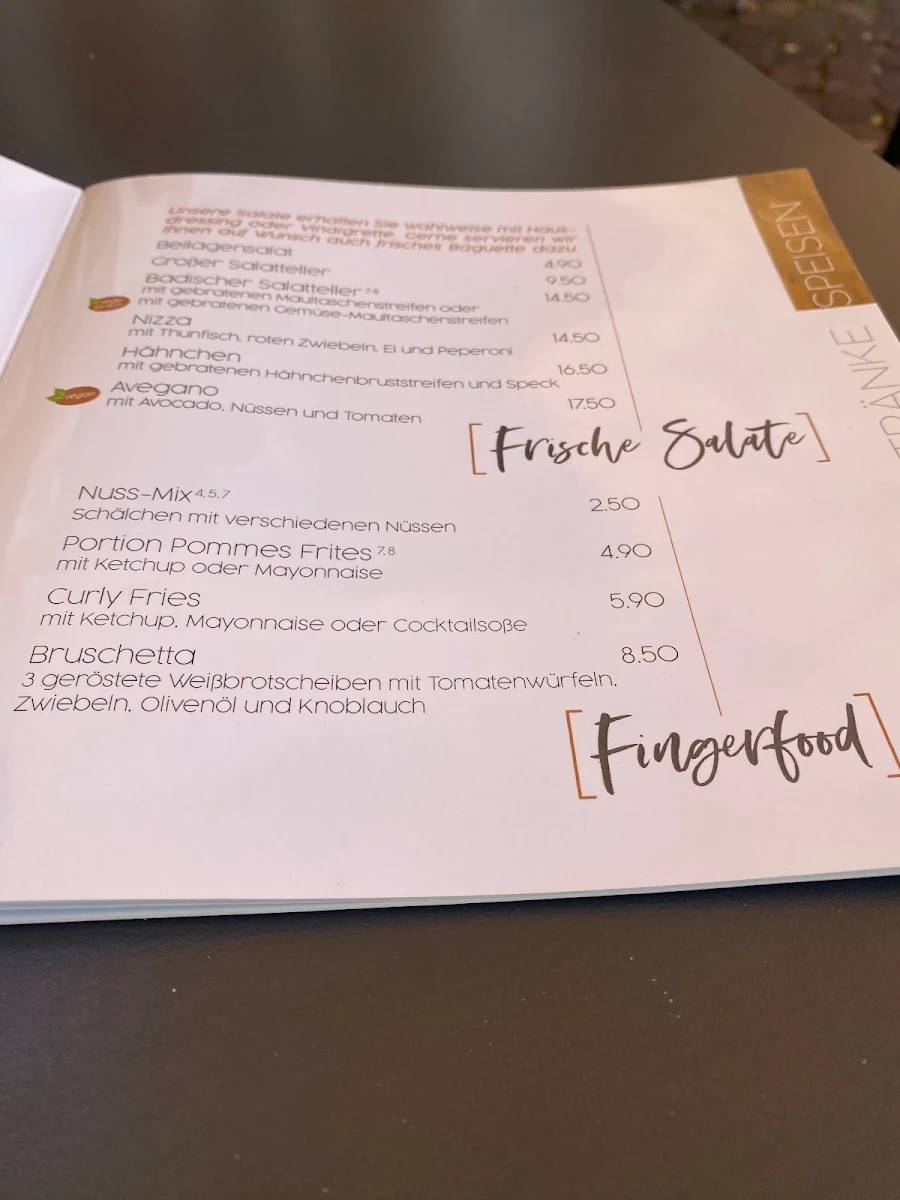 Unsere Salate erhalten Sie wahlweise mit Haus-
dressing oder Vinaigrette. Gerne servieren wir
Ihnen auf Wunsch auch frisches Baguette dazu.
Beilagensalat 4.90
Großer Salatteller 9.50
Badischer Salatteller 7,8 14.50
mit gebratenen Maultaschenstreifen oder
mit gebratenen Gemüse-Maultaschenstreifen
Nizza 14.50
mit Thunfisch, roten Zwiebeln, Ei und Peperoni
Hähnchen 16.50
mit gebratenen Hähnchenbruststreifen und Speck
vegan
Avegano 17.50
mit Avocado, Nüssen und Tomaten
[Frische Salate]
Nuss-Mix 4,5,7 2.50
Schälchen mit verschiedenen Nüssen
Portion Pommes Frites 7,8 4.90
mit Ketchup oder Mayonnaise
Curly Fries 5.90
mit Ketchup, Mayonnaise oder Cocktailsoße
Bruschetta 8.50
3 geröstete Weißbrotscheiben mit Tomatenwürfeln,
Zwiebeln, Olivenöl und Knoblauch
[Fingerfood]
SPEISEN
TRÄNKE